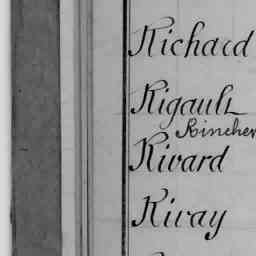 Richard
Rigault
Rivard
Rivay